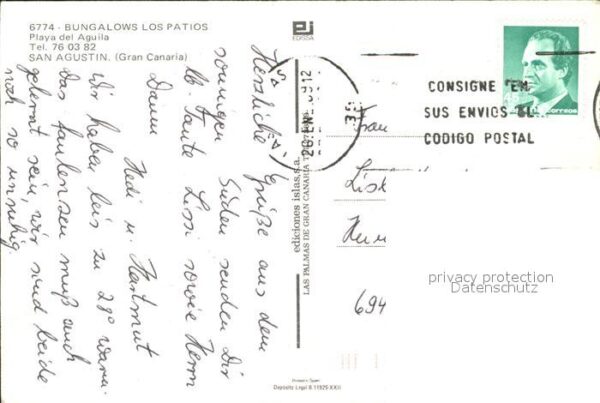 6774 - BUNGALOWS LOS PATIOS
Playa del Aguila
Tel. 76 03 82
SAN AGUSTIN. (Gran Canaria)
Herzliche Grüße aus dem
sonnigen Süden senden Dir
lb. Tante Lissi sowie Herrn
Damm
Hedi u. Hartmut
Wir haben bis zu 28° warm.
das faulenzen muß auch
gelernt sein, wir sind beide
noch so unruhig.
EDISSA
ediciones islas, s.a.
LAS PALMAS DE GRAN CANARIA
Printed in Spain
Depósito Legal B 11925-XXII
CONSIGNE EN
SUS ENVIOS EL
CODIGO POSTAL
correos
Frau
Lisk
694
privacy protection
Datenschutz